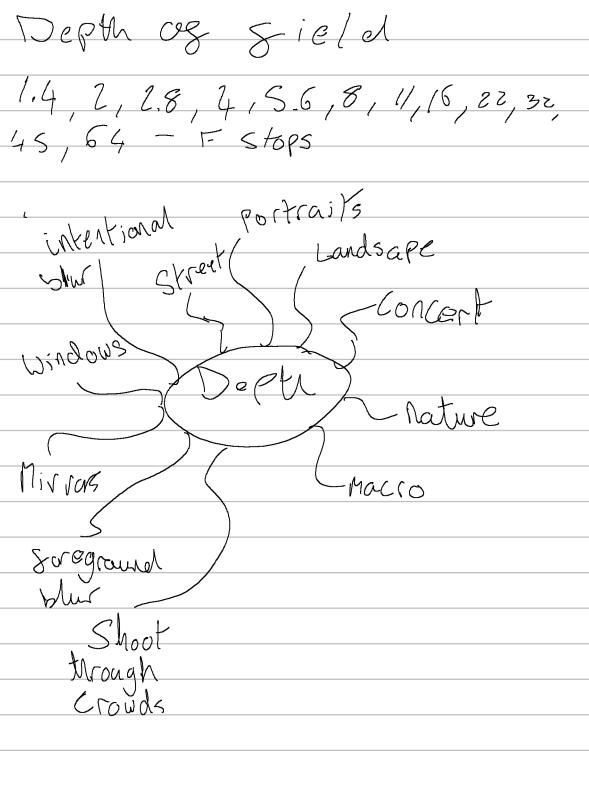 Depth of field
1.4, 2, 2.8, 4, 5.6, 8, 11, 16, 22, 32,
45, 64 - F stops
intentional
blur
Street
Portraits
Landsape
Concert
Windows
Depth
Nature
Mirrors
Macro
foreground
blur
Shoot
through
Crowds